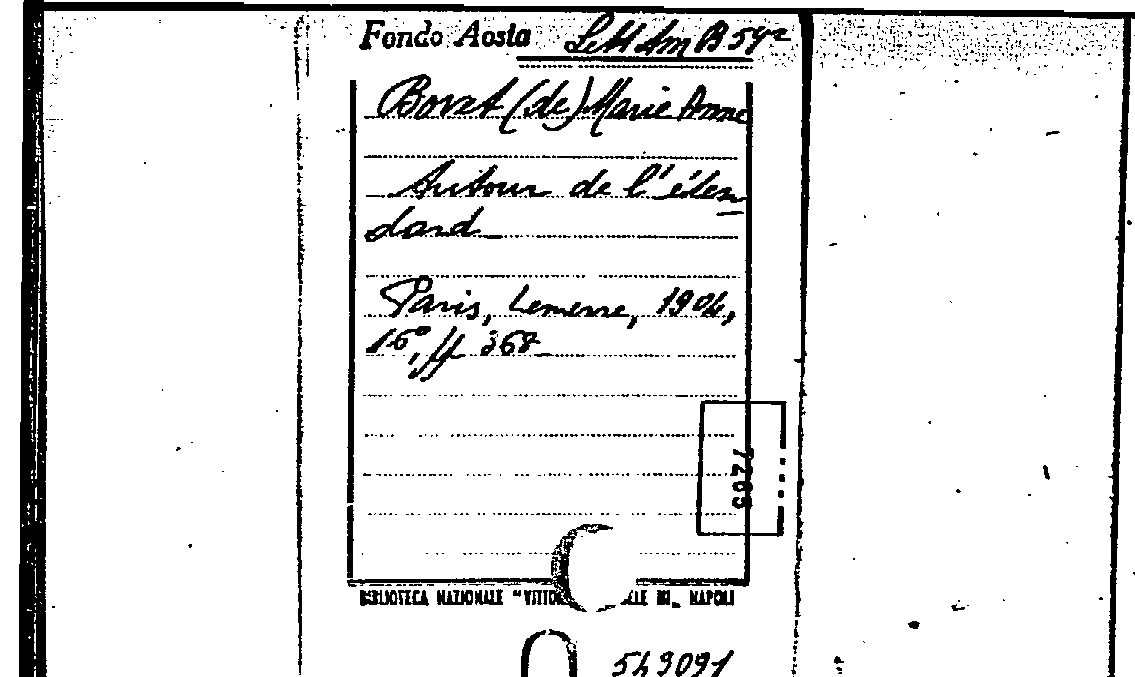 Fondo Aosta Lett Am B 54²
Bovet (de) Marie Anne
Autour de l'éten
dard
Paris, Lemerre, 1904,
16°, ff 368
7265
BIBLIOTECA NAZIONALE "VITTO ELE III„ NAPOLI
549091